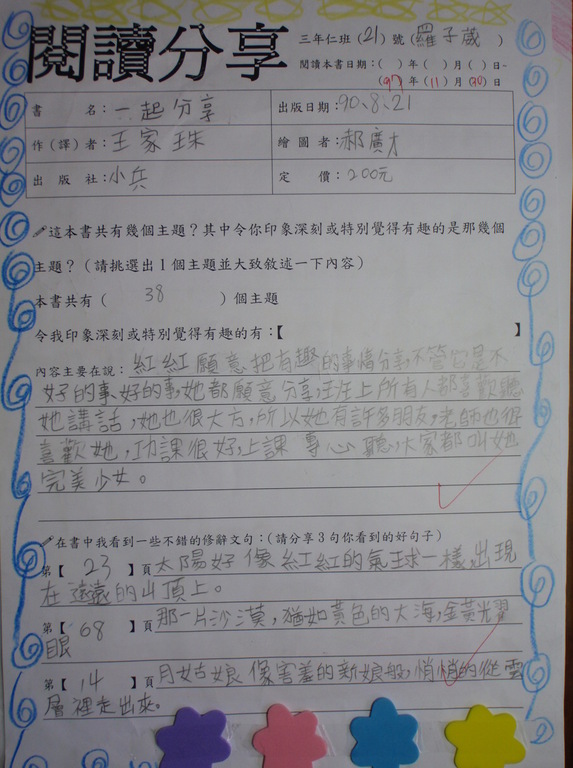 閱讀分享
三年仁班(21)號(羅子葳)
閱讀本書日期:( )年( )月( )日~
(97)年(11)月(20)日
書名:一起分享
出版日期:90、8、21
作(譯)者:王家珠
繪圖者:郝廣才
出版社:小兵
定價:200元
這本書共有幾個主題?其中令你印象深刻或特別覺得有趣的是那幾個
主題?(請挑選出1個主題並大致敘述一下內容)
本書共有(38)個主題
令我印象深刻或特別覺得有趣的有:【 】
內容主要在說:紅紅願意把有趣的事情分享,不管是不
好的事、好的事,她都願意分享,班上所有人都喜歡聽
她講話,她也很大方,所以她有許多朋友,老師也很
喜歡她,功課很好,上課專心聽,大家都叫她
完美少女。
在書中我看到一些不錯的修辭文句:(請分享3句你看到的好句子)
第【23】頁太陽好像紅紅的氣球一樣出現
在遠遠的山頂上。
第【68】頁那一片沙漠,猶如黃色的大海,金黃光耀
眼
第【14】頁月姑娘像害羞的新娘般,悄悄的從雲
層裡走出來。